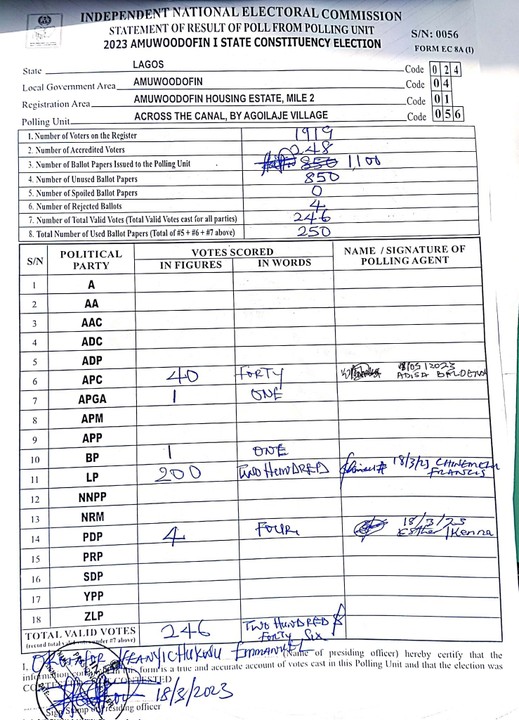 INDEPENDENT NATIONAL ELECTORAL COMMISSION
STATEMENT OF RESULT OF POLL FROM POLLING UNIT
2023 AMUWOODOFIN I STATE CONSTITUENCY ELECTION
S/N: 0056
FORM EC 8A (I)
State LAGOS Code 0 2 4
Local Government Area AMUWOODOFIN Code 0 4
Registration Area AMUWOODOFIN HOUSING ESTATE, MILE 2 Code 0 1
Polling Unit ACROSS THE CANAL, BY AGOILAJE VILLAGE Code 0 5 6
1. Number of Voters on the Register 1919
2. Number of Accredited Voters 248
3. Number of Ballot Papers Issued to the Polling Unit 850 1100
4. Number of Unused Ballot Papers 850
5. Number of Spoiled Ballot Papers 0
6. Number of Rejected Ballots 4
7. Number of Total Valid Votes (Total Valid Votes cast for all parties) 246
8. Total Number of Used Ballot Papers (Total of #5 + #6 + #7 above) 250
S/N POLITICAL PARTY VOTES SCORED NAME / SIGNATURE OF POLLING AGENT
IN FIGURES IN WORDS
1 A
2 AA
3 AAC
4 ADC
5 ADP
6 APC 40 FORTY 18/03/2023 ADISA
7 APGA 1 ONE
8 APM
9 APP
10 BP 1 ONE
11 LP 200 TWO HUNDRED 18/3/23 FRANCIS
12 NNPP
13 NRM
14 PDP 4 FOUR 18/3/23 Esther
15 PRP
16 SDP
17 YPP
18 ZLP
TOTAL VALID VOTES 246 TWO HUNDRED & FORTY SIX
I, IFEANYICHUKWU EMMANUEL (Name of presiding officer) hereby certify that the
information in this form is a true and accurate account of votes cast in this Polling Unit and that the election was
CONTESTED
18/3/2023
Sign Stamp of Presiding officer